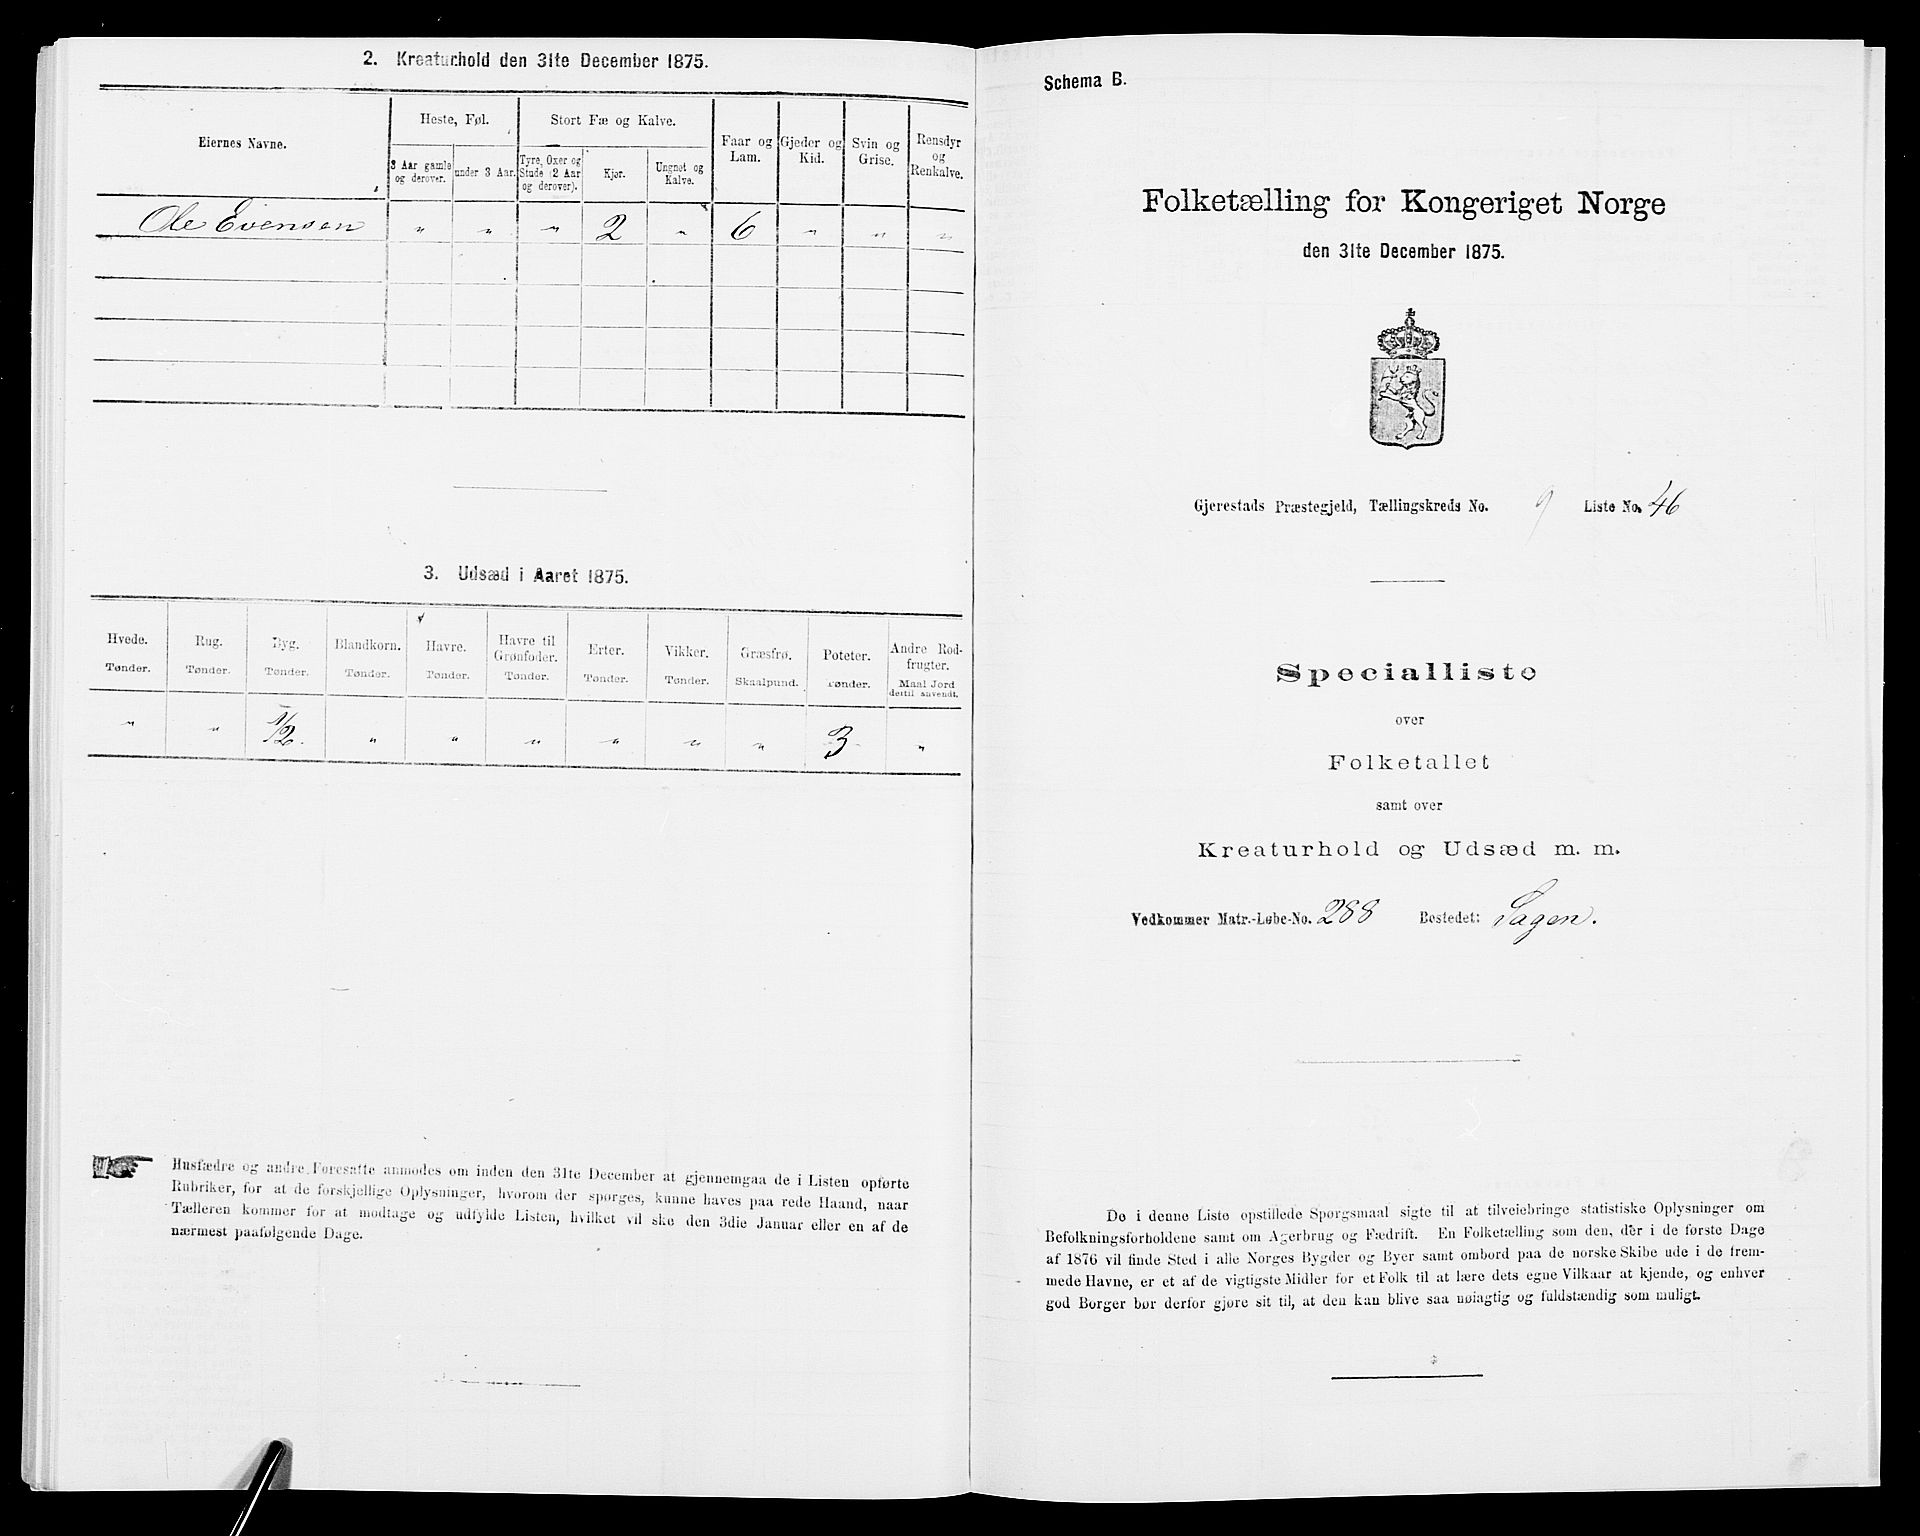 2. Kreaturhold den 31te December 1875.
Eiernes Navne.
Heste, Føl.
Stort Fæ og Kalve.
Faar og Lam.
Gjeder og Kid.
Svin og Grise.
Rensdyr og Renkalve.
3 Aar gamle og derover.
under 3 Aar.
Tyre, Oxer og Stude (2 Aar og derover).
Kjør.
Ungnøt og Kalve.
Ole Evensen " " " 2 " 6 " " "
3. Udsæd i Aaret 1875.
Hvede. Rug. Byg. Blandkorn. Havre. Havre til Grønfoder. Erter. Vikker. Græsfrø. Poteter. Andre Rodfrugter.
Tønder. Tønder. Tønder. Tønder. Tønder. Tønder. Tønder. Tønder. Skaalpund. Tønder. Maal Jord dertil anvendt.
" " 1/2. " " " " " " 3 "
Husfædre og andre Foresatte anmodes om inden den 31te December at gjennemgaa de i Listen opførte
Rubriker, for at de forskjellige Oplysninger, hvorom der spørges, kunne haves paa rede Haand, naar
Tælleren kommer for at modtage og udfylde Listen, hvilket vil ske den 3die Januar eller en af de
nærmest paafølgende Dage.
Schema B.
Folketælling for Kongeriget Norge
den 31te December 1875.
Gjerestads Præstegjeld, Tællingskreds No. 9 Liste No. 46
Specialliste
over
Folketallet
samt over
Kreaturhold og Udsæd m. m.
Vedkommer Matr.-Løbe-No. 288 Bostedet: Sagen.
De i denne Liste opstillede Spørgsmaal sigte til at tilveiebringe statistiske Oplysninger om
Befolkningsforholdene samt om Agerbrug og Fædrift. En Folketælling som den, der i de første Dage
af 1876 vil finde Sted i alle Norges Bygder og Byer samt ombord paa de norske Skibe ude i de frem-
mede Havne, er et af de vigtigste Midler for et Folk til at lære dets egne Vilkaar at kjende, og enhver
god Borger bør derfor gjøre sit til, at den kan blive saa nøiagtig og fuldstændig som muligt.